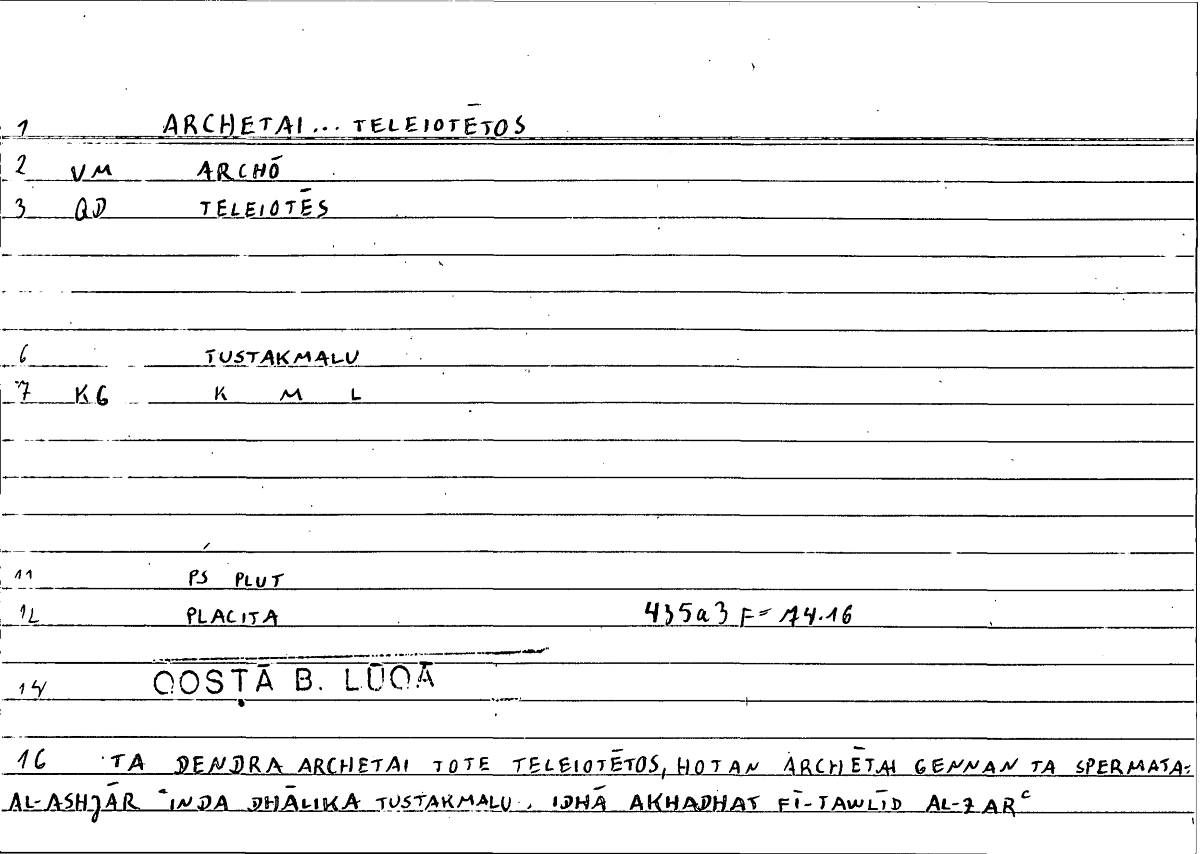 1 ARCHETAI... TELEIOTĒTOS
2 VM ARCHŌ
3 QD TELEIOTĒS
6 TUSTAKMALU
7 KG K M L
11 PS PLUT
12 PLACITA 435a3 F = 74.16
14 QOSṬĀ B. LŪQĀ
16 TA DENDRA ARCHETAI TOTE TELEIOTĒTOS, HOTAN ARCHĒTAI GENNAN TA SPERMATA:
AL-ASHJĀR ʿINDA DHĀLIKA TUSTAKMALU. IDHĀ AKHADHAT FĪ-TAWLĪD AL-ZARʿ